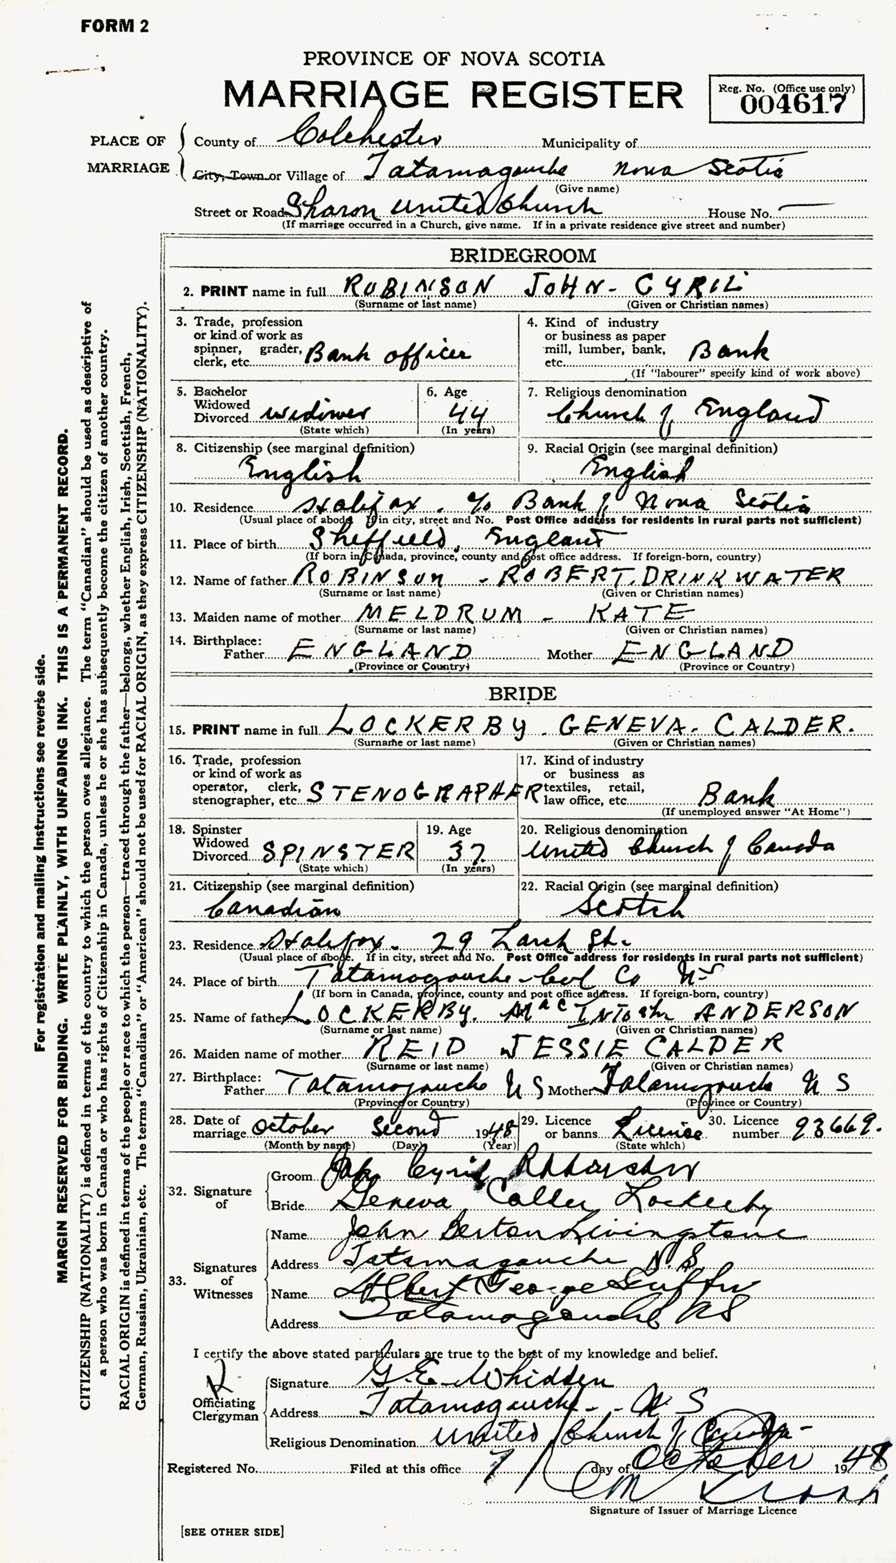 FORM 2
PROVINCE OF NOVA SCOTIA
MARRIAGE REGISTER
Reg. No. (Office use only)
004617
PLACE OF MARRIAGE
County of Colchester Municipality of
City, Town or Village of Tatamagouche Nova Scotia
(Give name)
Street or Road Sharon United Church House No. —
(If marriage occurred in a Church, give name. If in a private residence give street and number)
BRIDEGROOM
2. PRINT name in full ROBINSON JOHN - CYRIL
(Surname or last name) (Given or Christian names)
3. Trade, profession or kind of work as spinner, grader, clerk, etc. Bank officer
4. Kind of industry or business as paper mill, lumber, bank, etc. Bank
(If "labourer" specify kind of work above)
5. Bachelor Widowed Divorced widower
(State which)
6. Age 44
(In years)
7. Religious denomination Church of England
8. Citizenship (see marginal definition) English
9. Racial Origin (see marginal definition) English
10. Residence Halifax. c/o Bank of Nova Scotia
(Usual place of abode. If in city, street and No. Post Office address for residents in rural parts not sufficient)
11. Place of birth Sheffield, England
(If born in Canada, province, county and post office address. If foreign-born, country)
12. Name of father ROBINSON - ROBERT. DRINKWATER
(Surname or last name) (Given or Christian names)
13. Maiden name of mother MELDRUM - KATE
(Surname or last name) (Given or Christian names)
14. Birthplace: Father ENGLAND Mother ENGLAND
(Province or Country) (Province or Country)
BRIDE
15. PRINT name in full LOCKERBY. GENEVA. CALDER.
(Surname or last name) (Given or Christian names)
16. Trade, profession or kind of work as operator, clerk, stenographer, etc. STENOGRAPHER
17. Kind of industry or business as textiles, retail, law office, etc. Bank
(If unemployed answer "At Home")
18. Spinster Widowed Divorced SPINSTER
(State which)
19. Age 37
(In years)
20. Religious denomination United Church of Canada
21. Citizenship (see marginal definition) Canadian
22. Racial Origin (see marginal definition) Scotch
23. Residence Halifax. 29 Larch St.
(Usual place of abode. If in city, street and No. Post Office address for residents in rural parts not sufficient)
24. Place of birth Tatamagouche - Col Co NS
(If born in Canada, province, county and post office address. If foreign-born, country)
25. Name of father LOCKERBY. MacINTosh ANDERSON
(Surname or last name) (Given or Christian names)
26. Maiden name of mother REID JESSIE CALDER
(Surname or last name) (Given or Christian names)
27. Birthplace: Father Tatamagouche N S Mother Tatamagouche N S
(Province or Country) (Province or Country)
28. Date of marriage October Second 1948
(Month by name) (Day) (Year)
29. Licence or banns License
(State which)
30. Licence number 93669.
32. Signature of
Groom John Cyril Robinson
Bride Geneva Calder Lockerby
33. Signatures of Witnesses
Name John Berton Livingstone
Address Tatamagouche N.S.
Name Albert George
Address Tatamagouche NS
I certify the above stated particulars are true to the best of my knowledge and belief.
Officiating Clergyman
Signature G. E. Whidden
Address Tatamagouche - N S
Religious Denomination United Church of Canada
Registered No. Filed at this office 7 day of October 1948
Signature of Issuer of Marriage Licence
[SEE OTHER SIDE]
For registration and mailing instructions see reverse side.
MARGIN RESERVED FOR BINDING. WRITE PLAINLY, WITH UNFADING INK. THIS IS A PERMANENT RECORD.
CITIZENSHIP (NATIONALITY) is defined in terms of the country to which the person owes allegiance. The term "Canadian" should be used as descriptive of
a person who was born in Canada or who has rights of Citizenship in Canada, unless he or she has subsequently become the citizen of another country.
RACIAL ORIGIN is defined in terms of the people or race to which the person—traced through the father—belongs, whether English, Irish, Scottish, French,
German, Russian, Ukrainian, etc. The terms "Canadian" or "American" should not be used for RACIAL ORIGIN, as they express CITIZENSHIP (NATIONALITY).